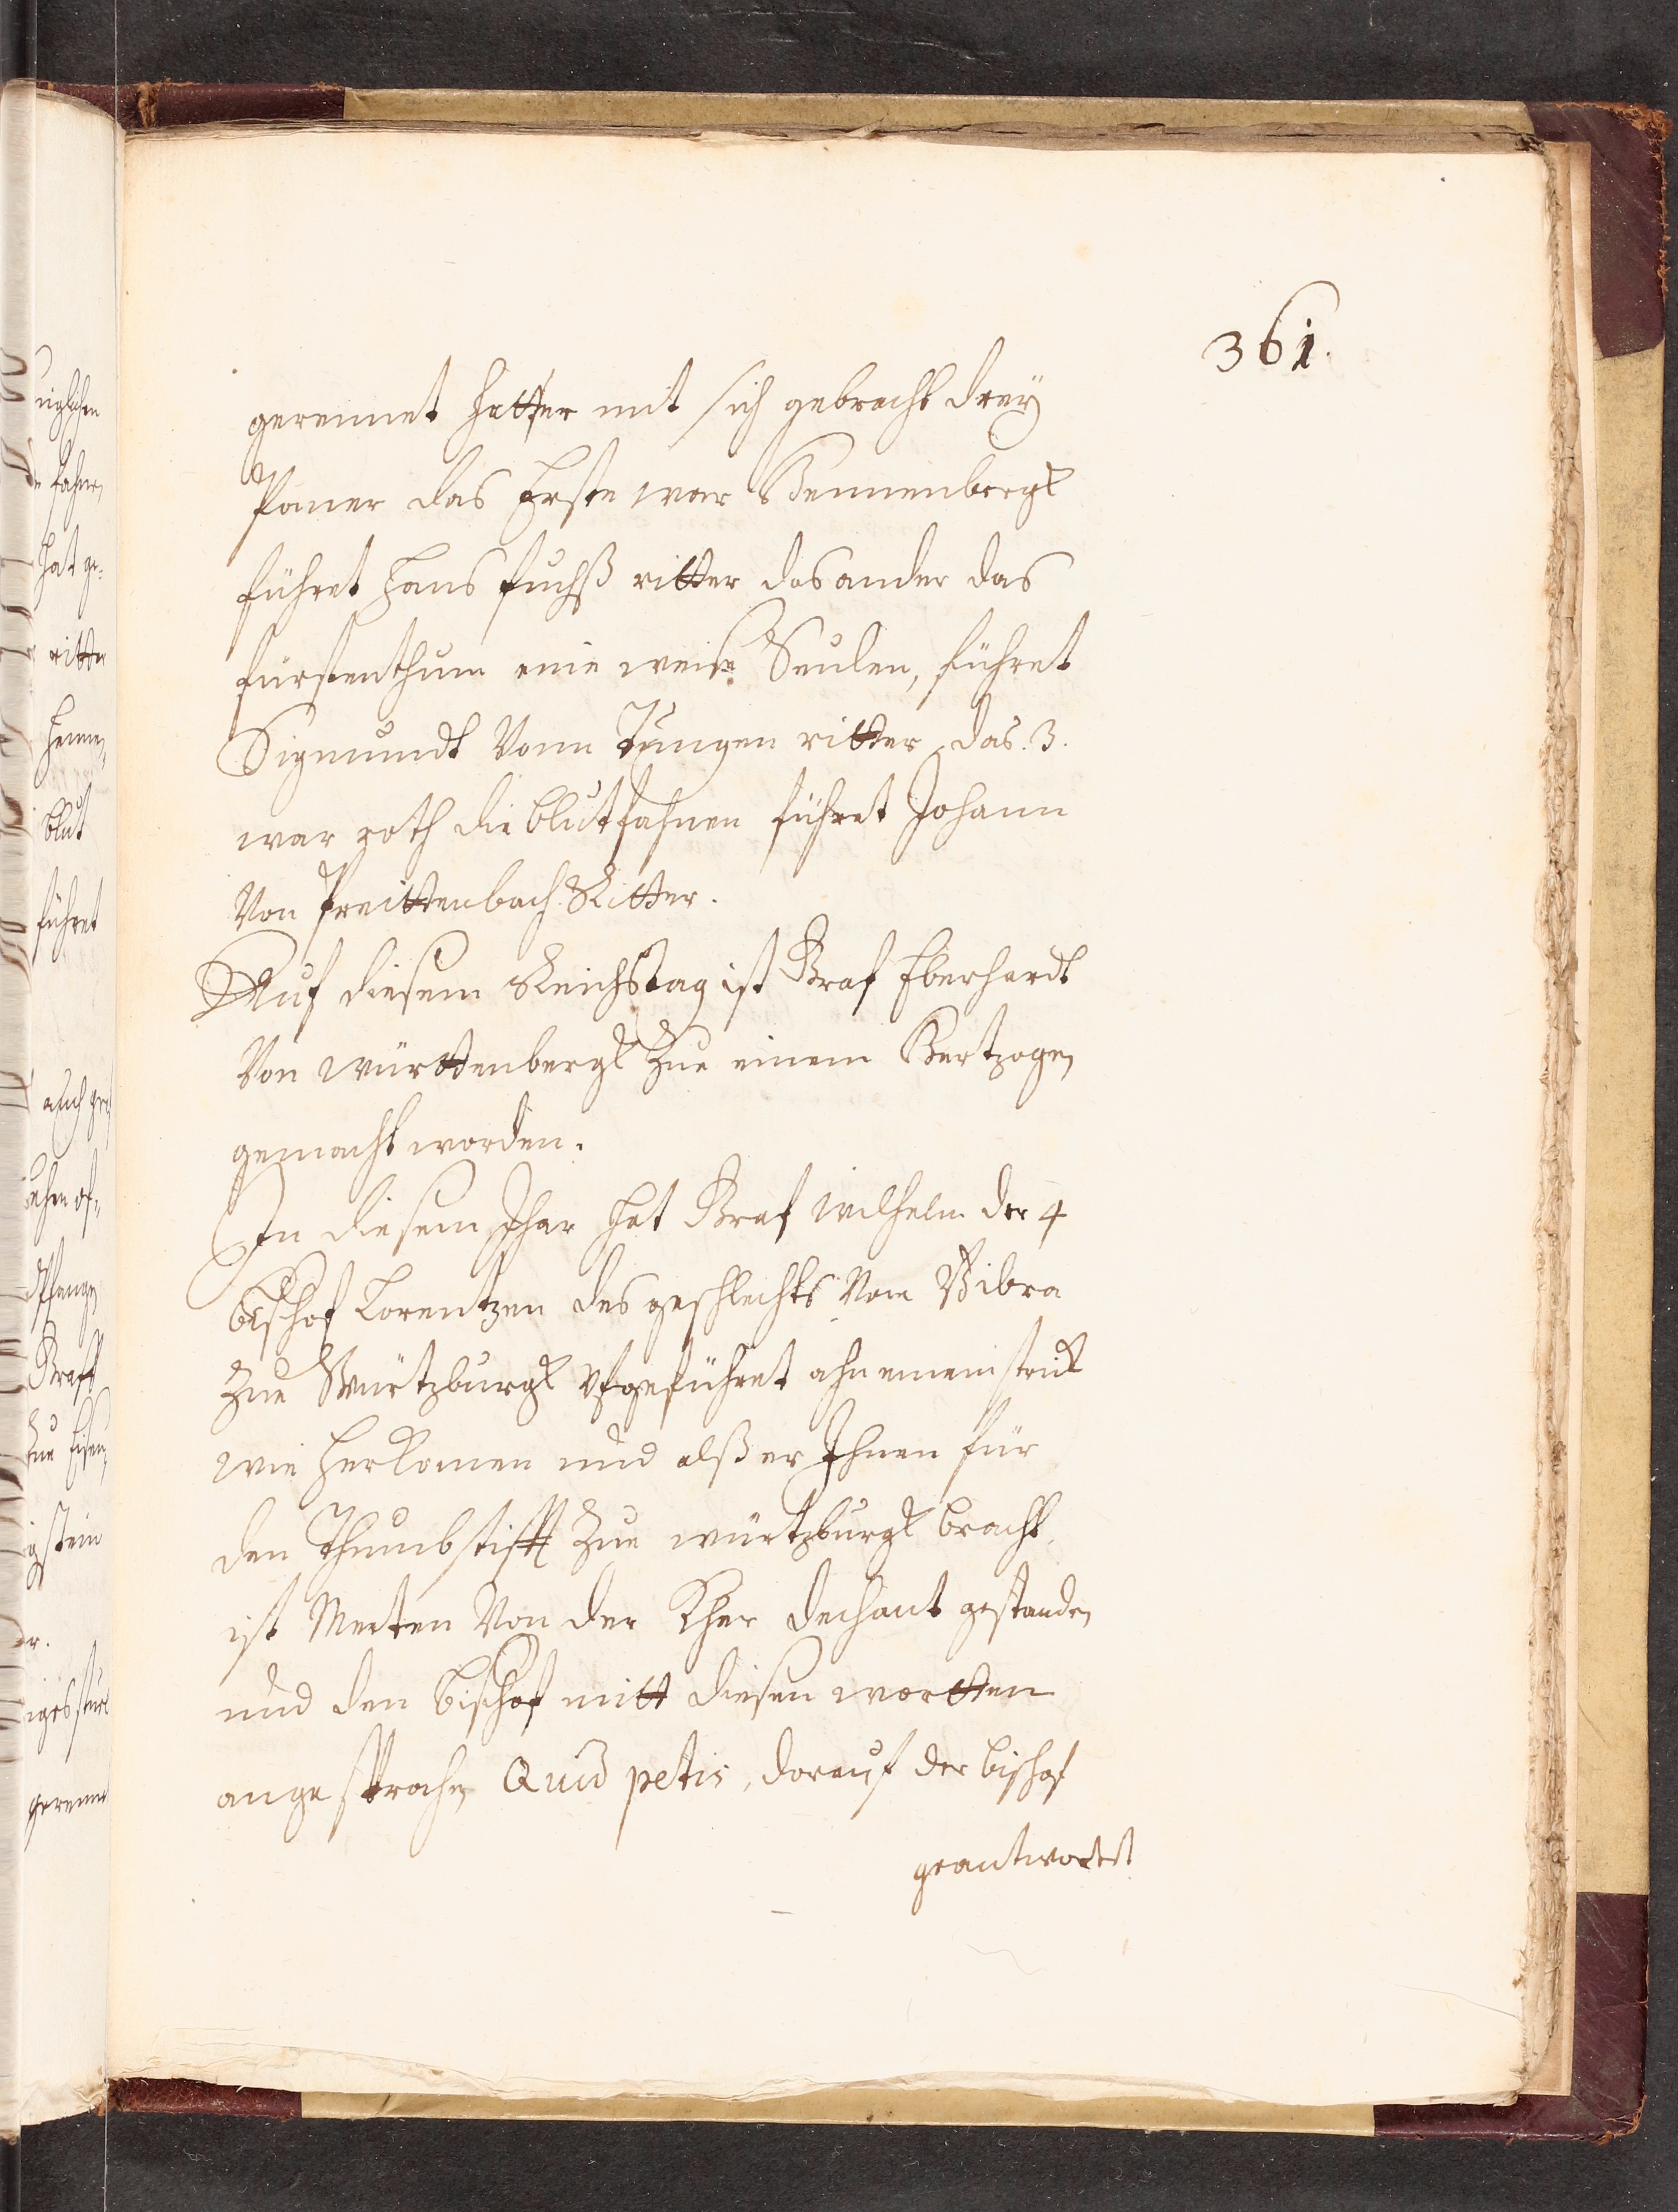 361.
gerennet hatt er mit sich gebracht dreÿ
Paner das Erste war Hennenbergk
führet Hans fuchß ritter das ander das
fürstenthum eine weise Seulen, führet
Sigmundt Vonn Tüngen ritter das. 3.
war roth die blutfahnen führet Johann
Von Preittenbach Ritter.
Auf diesem Reichstag ist Graf Eberhardt
Von Württenbergk zue einem Hertzogen
gemacht worden.
In diesem Jhar hat Graf Wilhelm der 4
bischof Lorentzen des geschlechts Von Bibra
zue Würtzburgk ufgeführet ahn einem strick
wie herkomen und alß er Ihnen für
den Thumbstifft zue würtzburgk bracht,
ist Merten Von der Kher dechant gestanden
und den bischof mitt diesen wortten
angesprochen Quid petis, dorauf der bischof
geantwortet